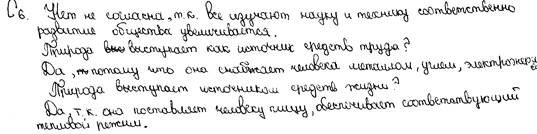 С6. Нет не согласна, т.к. все изучают науку и технику соответственно
развитие общества увеличивается.
Природа выступает как источник средств труда?
Да, потому что она снабжает человека металлом, углем, электроэнергией
Природа выступает источником средств жизни?
Да, т.к. она поставляет человеку пищу, обеспечивает соответствующий
тепловой режим.